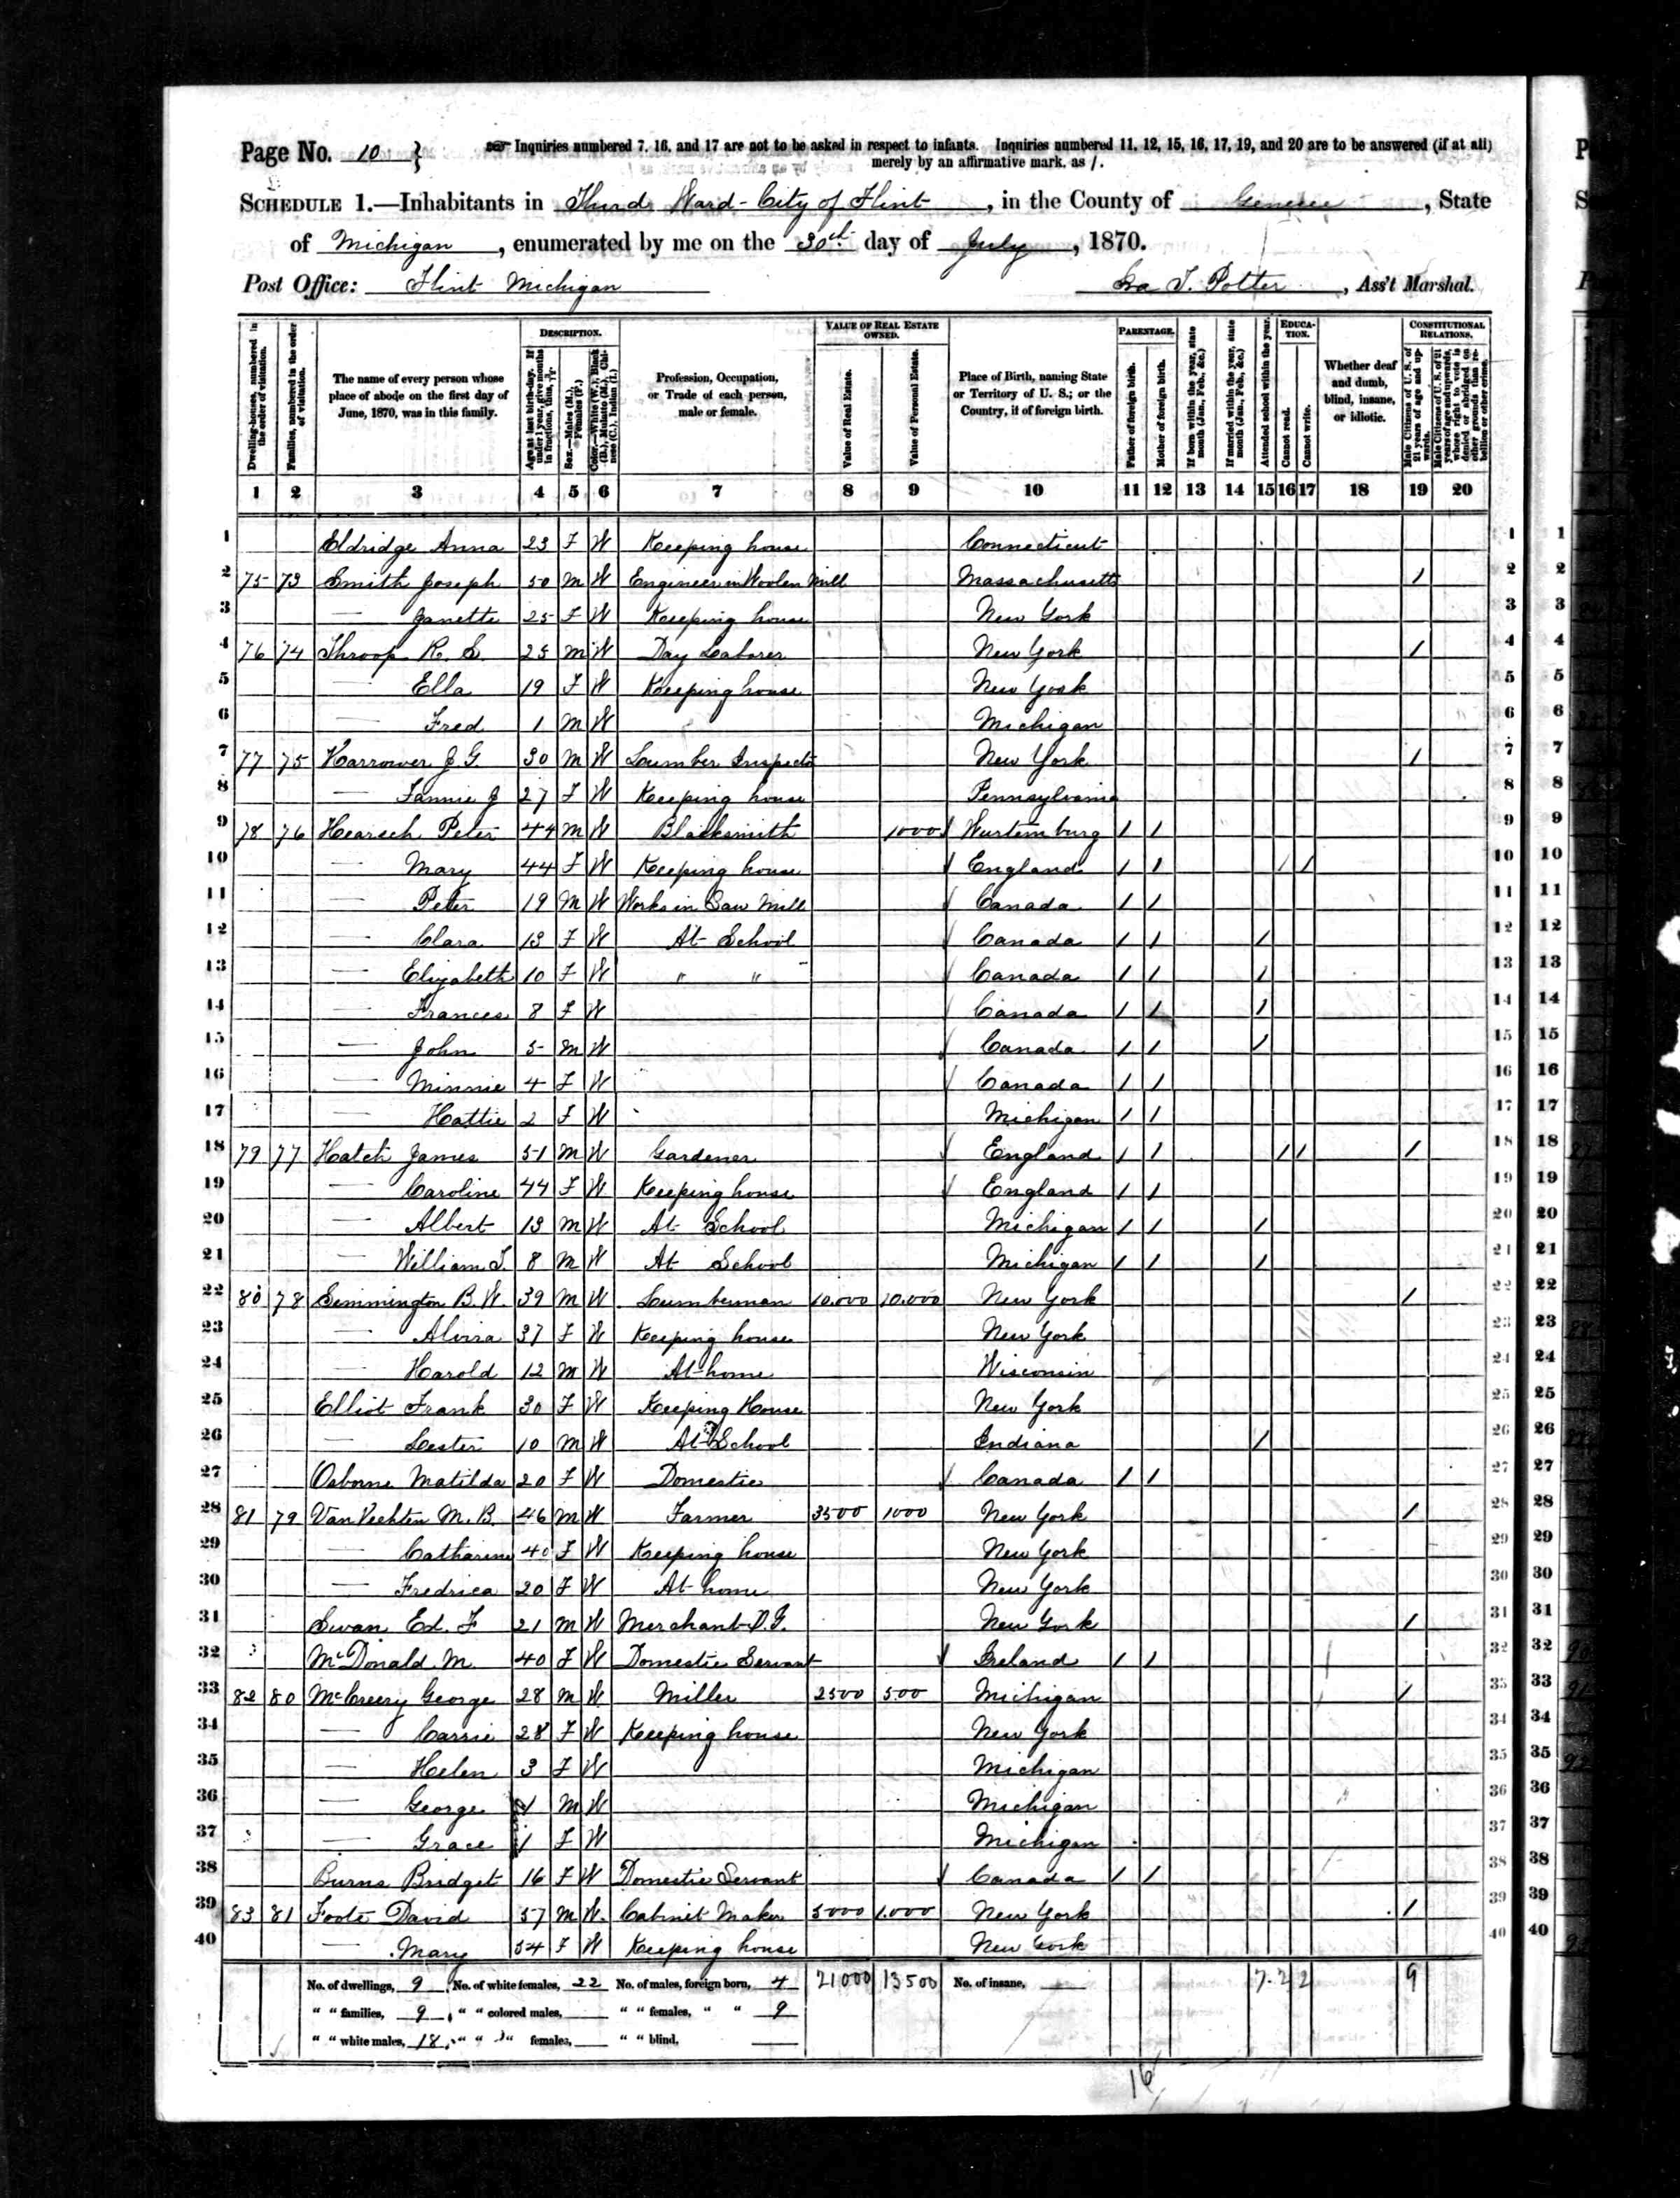 Page No. 10 } Inquiries numbered 7, 16, and 17 are not to be asked in respect to infants. Inquiries numbered 11, 12, 15, 16, 17, 19, and 20 are to be answered (if at all)
merely by an affirmative mark, as /.
SCHEDULE 1.—Inhabitants in Third Ward - City of Flint, in the County of Genesee, State
of Michigan, enumerated by me on the 30th day of July, 1870.
Post Office: Flint Michigan Ira T. Potter, Ass't Marshal.
Dwelling-houses, numbered in the order of visitation.
Families, numbered in the order of visitation.
The name of every person whose place of abode on the first day of June, 1870, was in this family.
DESCRIPTION.
Age at last birth-day. If under 1 year, give months in fractions, thus, 3/12.
Sex.—Males (M.), Females (F.)
Color.—White (W.), Black (B.), Mulatto (M.), Chinese (C.), Indian (I.)
Profession, Occupation, or Trade of each person, male or female.
VALUE OF REAL ESTATE OWNED.
Value of Real Estate.
Value of Personal Estate.
Place of Birth, naming State or Territory of U. S.; or the Country, if of foreign birth.
PARENTAGE.
Father of foreign birth.
Mother of foreign birth.
If born within the year, state month (Jan., Feb., &c.)
If married within the year, state month (Jan., Feb., &c.)
Attended school within the year.
EDUCATION.
Cannot read.
Cannot write.
Whether deaf and dumb, blind, insane, or idiotic.
CONSTITUTIONAL RELATIONS.
Male Citizens of U. S. of 21 years of age and upwards.
Male Citizens of U. S. of 21 years of age and upwards, whose right to vote is denied or abridged on other grounds than rebellion or other crime.
1 2 3 4 5 6 7 8 9 10 11 12 13 14 15 16 17 18 19 20
1 Eldridge Anna 23 F W Keeping house Connecticut 1
2 75 73 Smith Joseph 50 M W Engineer in Woolen Mill Massachusetts / 2
3 — Janette 25 F W Keeping house New York 3
4 76 74 Throop R. S. 25 M W Day Laborer New York / 4
5 — Ella 19 F W Keeping house New York 5
6 — Fred 1 M W Michigan 6
7 77 75 Harrower J G. 30 M W Lumber Inspector New York / 7
8 — Fannie J 27 F W Keeping house Pennsylvania 8
9 78 76 Hearsch Peter 44 M W Blacksmith 1000 Wurtemburg / / 9
10 — Mary 44 F W Keeping house England / / / / 10
11 — Peter 19 M W Works in Saw Mill Canada / / 11
12 — Clara 13 F W At School Canada / / / 12
13 — Elizabeth 10 F W " " Canada / / / 13
14 — Frances 8 F W Canada / / / 14
15 — John 5 M W Canada / / / 15
16 — Minnie 4 F W Canada / / 16
17 — Hattie 2 F W Michigan / / 17
18 79 77 Hatch James 51 M W Gardener England / / / / / 18
19 — Caroline 44 F W Keeping house England / / 19
20 — Albert 13 M W At School Michigan / / / 20
21 — William T. 8 M W At School Michigan / / / 21
22 80 78 Simmington B. W. 39 M W Lumberman 10.000 10.000 New York / 22
23 — Alvira 37 F W Keeping house New York 23
24 — Harold 12 M W At home Wisconsin 24
25 Elliot Frank 30 F W Keeping House New York 25
26 — Lester 10 M W At School Indiana / 26
27 Osborne Matilda 20 F W Domestic Canada / / 27
28 81 79 Van Vechten M. B. 46 M W Farmer 3500 1000 New York / 28
29 — Catharine 40 F W Keeping house New York 29
30 — Fredrica 20 F W At home New York 30
31 Swan Ed. F 21 M W Merchant D.G. New York / 31
32 McDonald M 40 F W Domestic Servant Ireland / / 32
33 82 80 McCreery George 28 M W Miller 2500 500 Michigan / 33
34 — Carrie 28 F W Keeping house New York 34
35 — Helen 3 F W Michigan 35
36 — George 1 M W Michigan 36
37 — Grace 1 F W Michigan 37
38 Burns Bridget 16 F W Domestic Servant Canada / / 38
39 83 81 Foote David 57 M W. Cabinet Maker 5000 1.000 New York / 39
40 — Mary 54 F W Keeping house New York 40
No. of dwellings, 9 No. of white females, 22 No. of males, foreign born, 4 21000 13500 No. of insane, 7 2 2 9
" " families, 9 " " colored males, " " females, " " 9
" " white males, 18 " " " females, " " blind,
16